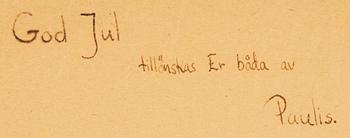 God Jul
tillönskas Er båda av
Paulis.